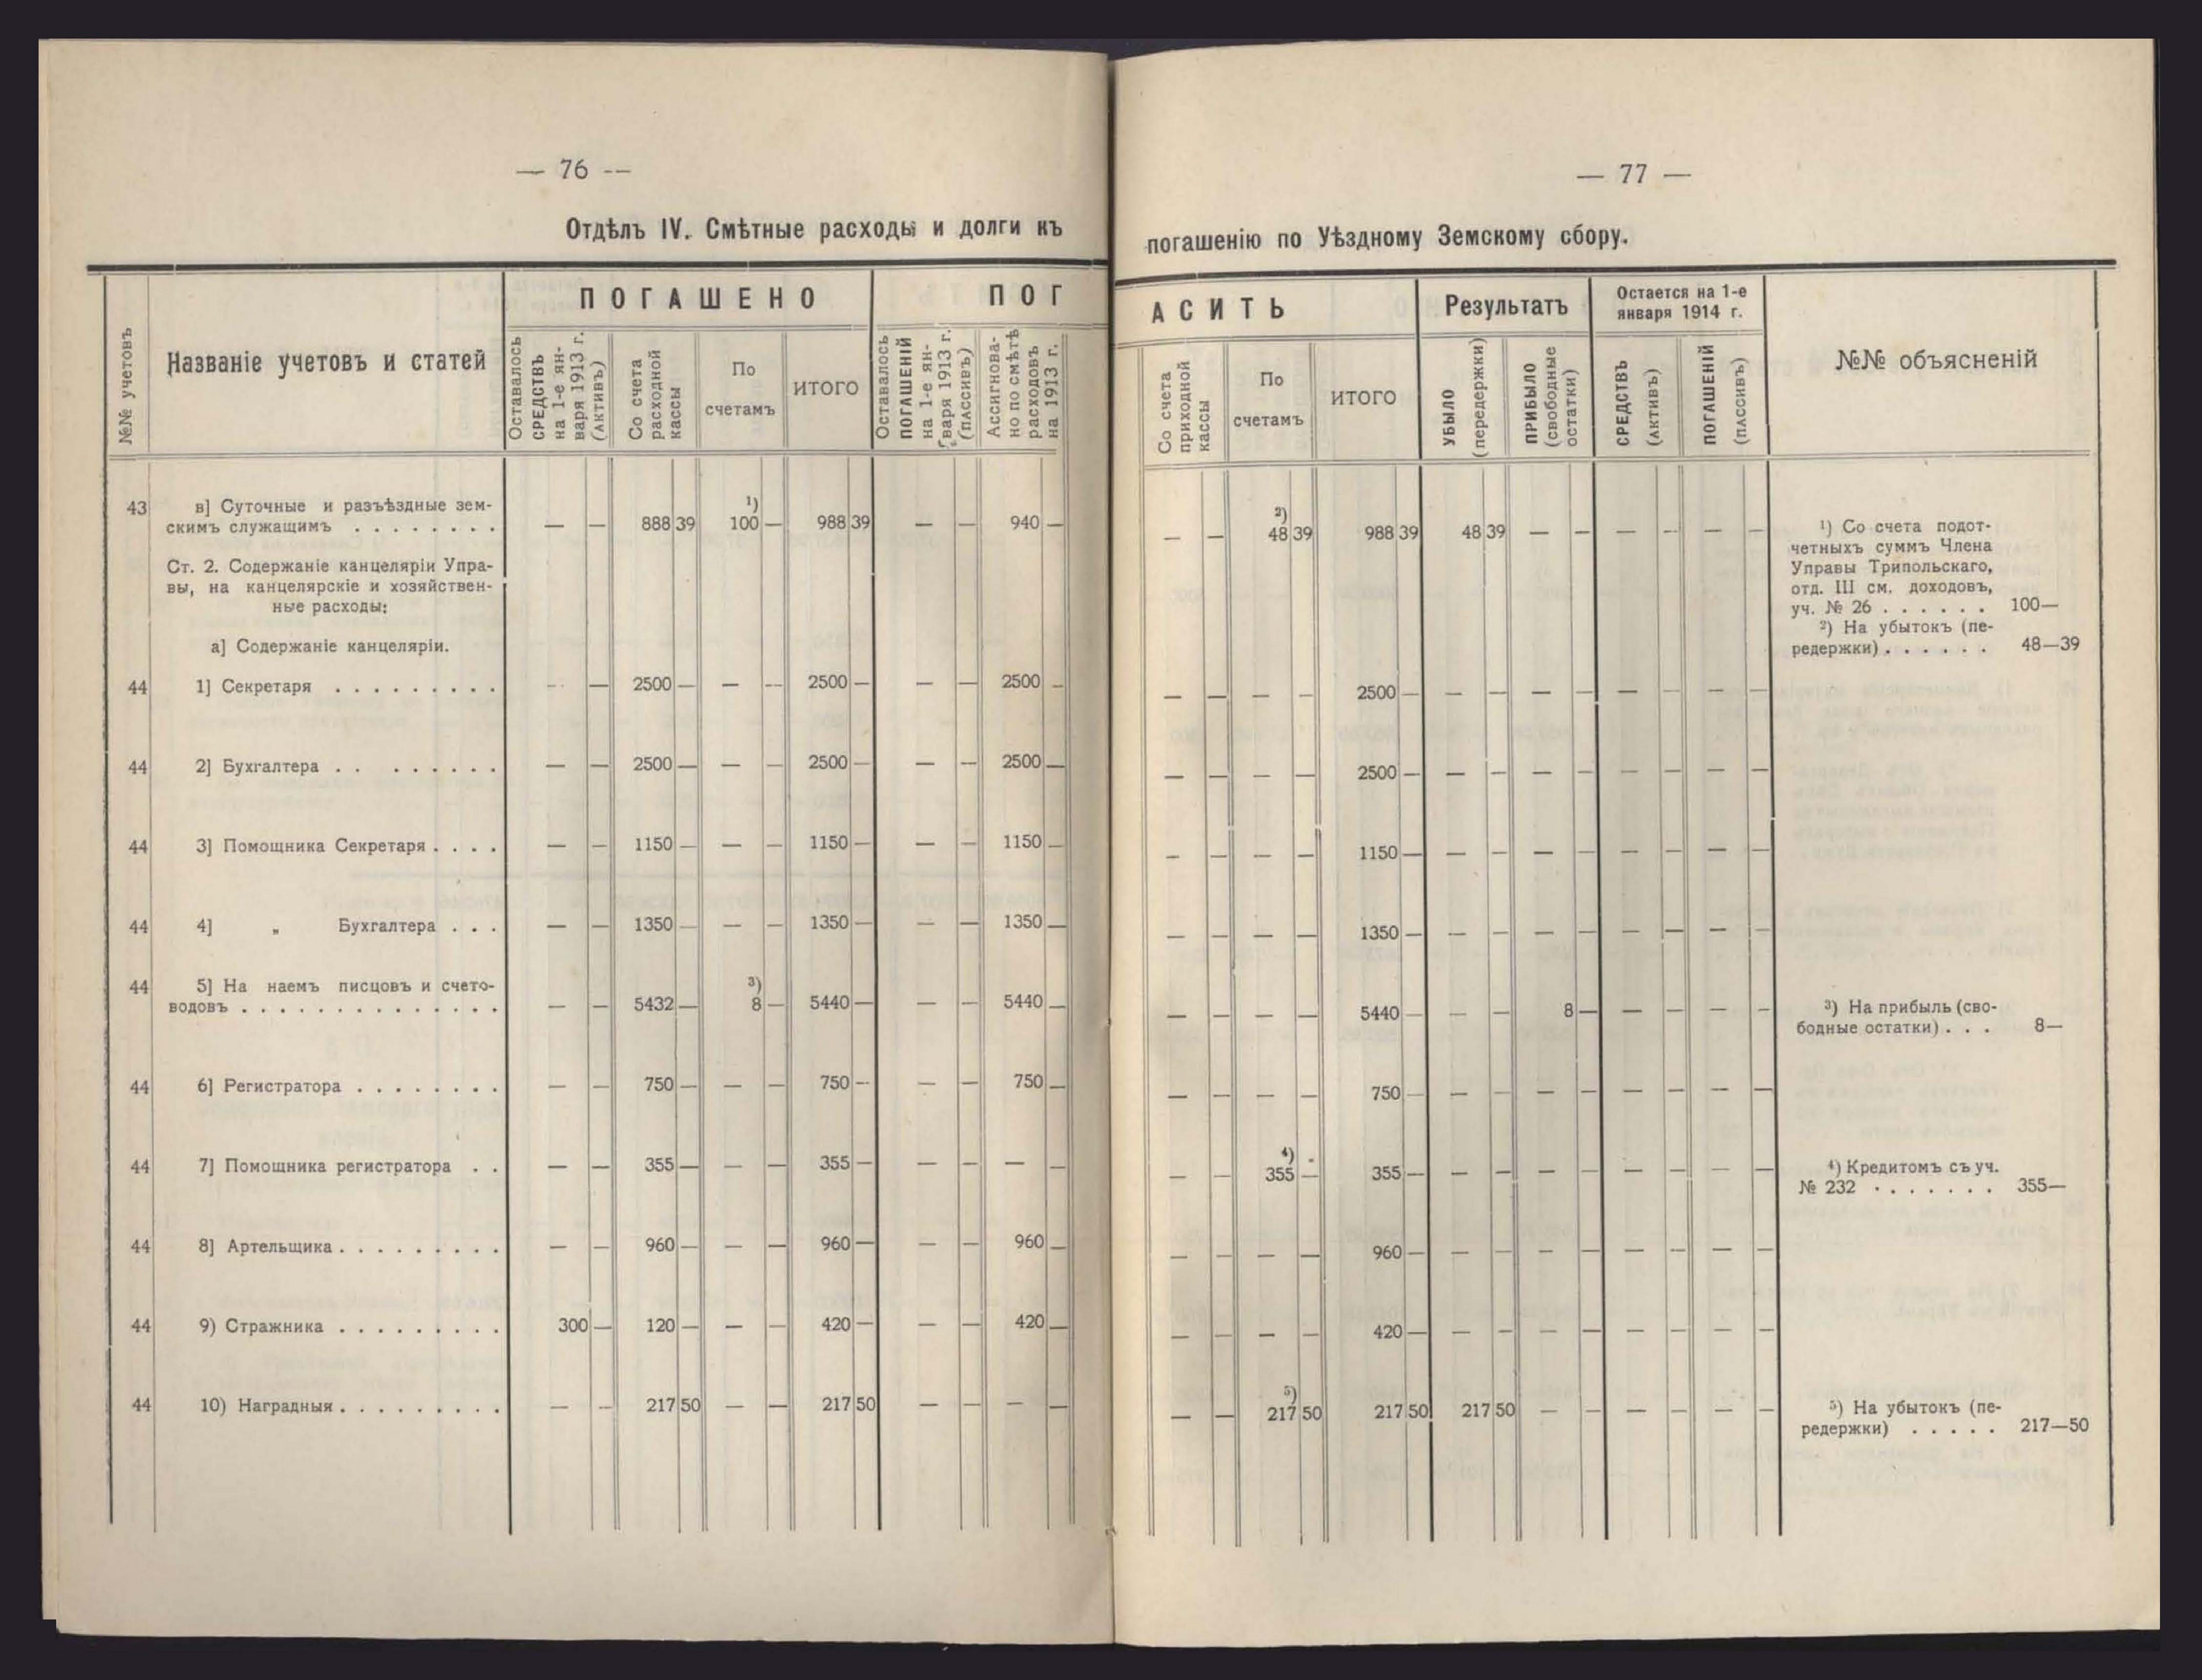 — 76 —
Отдѣлъ IV. Смѣтные расходы и долги къ
№№ учетовъ
Названіе учетовъ и статей
ПОГАШЕНО
ПОГ
Оставалось
СРЕДСТВЪ
на 1-е ян-
варя 1913 г.
(активъ)
Со счета
расходной
кассы
По
счетамъ
ИТОГО
Оставалось
ПОГАШЕНІЙ
на 1-е ян-
варя 1913 г.
(пассивъ)
Ассигнова-
но по смѣтѣ
расходовъ
на 1913 г.
43 в] Суточные и разъѣздные зем-
скимъ служащимъ . . . . . . . . — — 888 39 ¹) 100 — 988 39 — — 940 —
Ст. 2. Содержаніе канцеляріи Упра-
вы, на канцелярскіе и хозяйствен-
ные расходы:
а] Содержаніе канцеляріи.
44 1] Секретаря . . . . . . . . . — — 2500 — — — 2500 — — — 2500 —
44 2] Бухгалтера . . . . . . . . — — 2500 — — — 2500 — — — 2500 —
44 3] Помощника Секретаря . . . . — — 1150 — — — 1150 — — — 1150 —
44 4] „ Бухгалтера . . . — — 1350 — — — 1350 — — — 1350 —
44 5] На наемъ писцовъ и счето-
водовъ . . . . . . . . . . . . . . — — 5432 — ³) 8 — 5440 — — — 5440 —
44 6] Регистратора . . . . . . . . — — 750 — — — 750 — — — 750 —
44 7] Помощника регистратора . . — — 355 — — — 355 — — — — —
44 8] Артельщика . . . . . . . . . — — 960 — — — 960 — — — 960 —
44 9) Стражника . . . . . . . . . 300 — 120 — — — 420 — — — 420 —
44 10) Наградныя . . . . . . . . . — — 217 50 — — 217 50 — — — —
— 77 —
погашенію по Уѣздному Земскому сбору.
АСИТЬ
Результатъ
Остается на 1-е
января 1914 г.
№№ объясненій
Со счета
приходной
кассы
По
счетамъ
ИТОГО
УБЫЛО
(передержки)
ПРИБЫЛО
(свободные
остатки)
СРЕДСТВЪ
(активъ)
ПОГАШЕНІЙ
(пассивъ)
— — ²) 48 39 988 39 48 39 — — — — — —
¹) Со счета подот-
четныхъ суммъ Члена
Управы Трипольскаго,
отд. III см. доходовъ,
уч. № 26 . . . . . . 100—
²) На убытокъ (пе-
редержки) . . . . . . 48—39
— — — — 2500 — — — — — — — — —
— — — — 2500 — — — — — — — — —
— — — — 1150 — — — — — — — — —
— — — — 1350 — — — — — — — — —
— — — — 5440 — — — 8 — — — — —
³) На прибыль (сво-
бодные остатки) . . . 8—
— — — — 750 — — — — — — — — —
— — ⁴) 355 — 355 — — — — — — — — —
⁴) Кредитомъ съ уч.
№ 232 . . . . . . . 355—
— — — — 960 — — — — — — — — —
— — — — 420 — — — — — — — — —
— — ⁵) 217 50 217 50 217 50 — — — — — —
⁵) На убытокъ (пе-
редержки) . . . . . 217—50